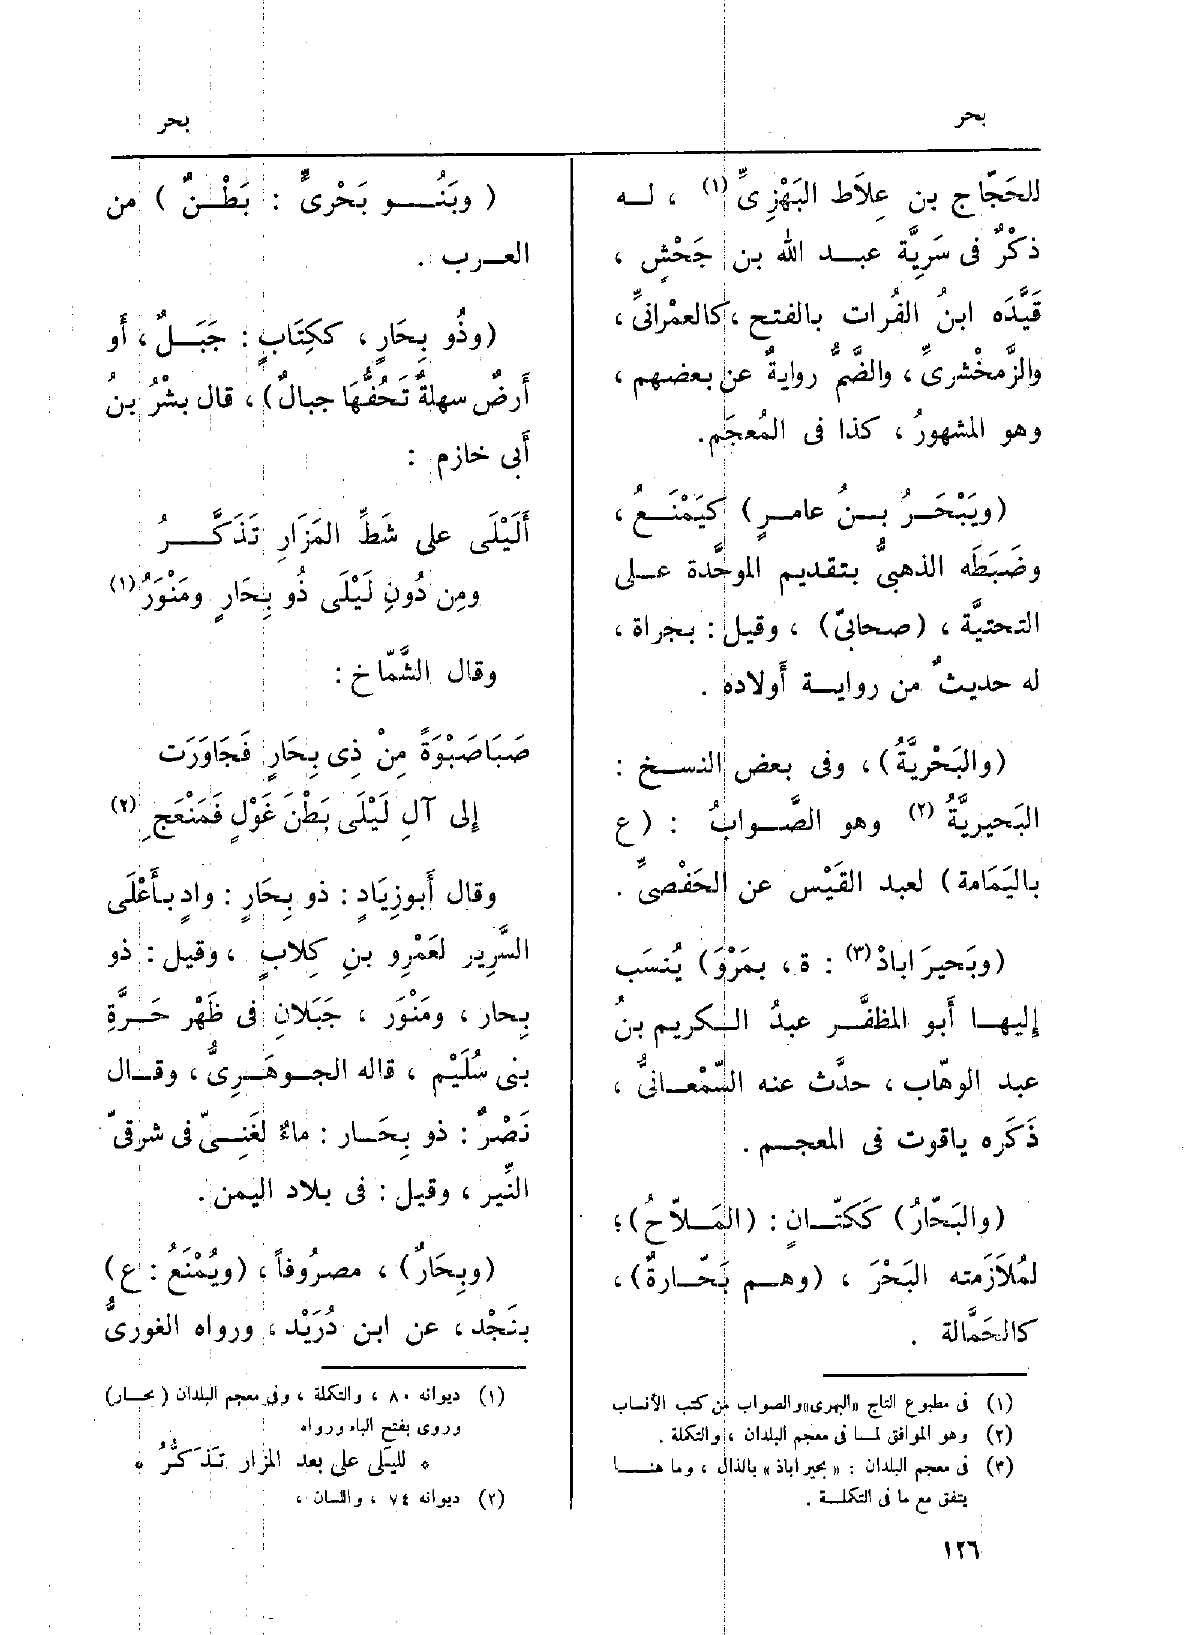 بحر
بحر
للحَجّاج بنِ عِلاَط البَهْزِىِّ (١) ، لــه
ذكْرٌ فى سَرِيَّة عبــد الله بن جَحْشٍ ،
قَيَّدَه ابنُ الفُرات بالفتح ، كالعمْرانىِّ ،
والزَّمخْشرىِّ ، والضَّمُّ روايةٌ عن بعضهم ،
وهو المشهورُ ، كذا فى المُعجَم.
(ويَبْحَــرُ بــنُ عامرٍ) كيَمْنَــعُ ،
وضَبَطَه الذهبىُّ بتقديم الموحَّدة عــلى
التحتيَّة ، (صحابىّ) ، وقيل : بجراة ،
له حديثٌ من روايــة أَولاده .
(والبَحْريَّةُ) ، وفى بعض النسخ :
البَحيريَّةُ (٢) وهو الصَّــوابُ : (ع
باليَمَامة) لعبد القَيْس عن الحَفْصىِّ .
(وبَحيرَاباذْ (٣) : ة ، بمَرْوَ) يُنسَب
إليهــا أَبو المظفَّــر عبدُ الــكريم بنُ
عبد الوهّاب ، حدَّث عنه السَّمْعــانىُّ ،
ذَكَره ياقوت فى المعجــم .
(والبَحّارُ) كَكتّــانٍ : (المَــلاّحُ) ؛
لمُلاَزَمته البَحْرَ ، (وهــم بَحّــارةٌ) ،
كالحَمَّالة .
(١) فى مطبوع التاج «البهرى» والصواب من كتب الأنساب
(٢) وهو الموافق لمــا فى معجم البلدان ، والتكلة .
(٣) فى معجم البلدان : «بحيراباذ» بالذال ، وما هنــا
يتفق مع ما فى التكلــة .
١٢٦
( وبَنُــــو بَحْرىٍّ : بَطْــنٌ ) من
العــرب .
(وذُو بِحَارٍ ، ككِتَابٍ : جَبَــلٌ ، أَو
أَرضٌ سهلةٌ تَحُفُّهَا جبالٌ) ، قال بشْرُ بنُ
أَبى خازم :
أَلَيْلَى على شَطِّ المَزَارِ تَذَكَّــــرُ
ومِن دُونِ لَيْلَى ذُو بِحَارٍ ومَنْوَرُ (١)
وقال الشَّمّاخ :
صَبَاصَبْوَةً مِنْ ذِى بِحَارٍ فَجَاوَرَت
إلى آلِ لَيْلَى بَطْنَ غَوْلٍ فَمَنْعَجِ (٢)
وقال أَبوزِيَادٍ : ذو بِحَارٍ : وادٍ بأَعْلَى
السَّرِير لعَمْرِو بنِ كِلابٍ ، وقيل : ذو
بِحار ، ومَنْوَر ، جَبَلانِ فى ظَهْر حَــرَّةِ
بنى سُلَيْم ، قاله الجــوهَــرىُّ ، وقــال
نَصْرٌ : ذو بِحَــار : ماءٌ لغَنِــىّ فى شرقىّ
النِّير ، وقيل : فى بلاد اليمن .
(وبِحَارٌ) ، مصرُوفاً ، (ويُمْنَعُ : ع)
بنَجْد ، عن ابن دُرَيْد ، ورواه الغورىُّ
(١) ديوانه ٨٠ ، والتكلة ، وفى معجم البلدان (بحــار)
وروى بفتح الباء ورواه
* لليلَى على بعد المزار تَذَكُّرُ *
(٢) ديوانه ٧٤ ، واللسان ،